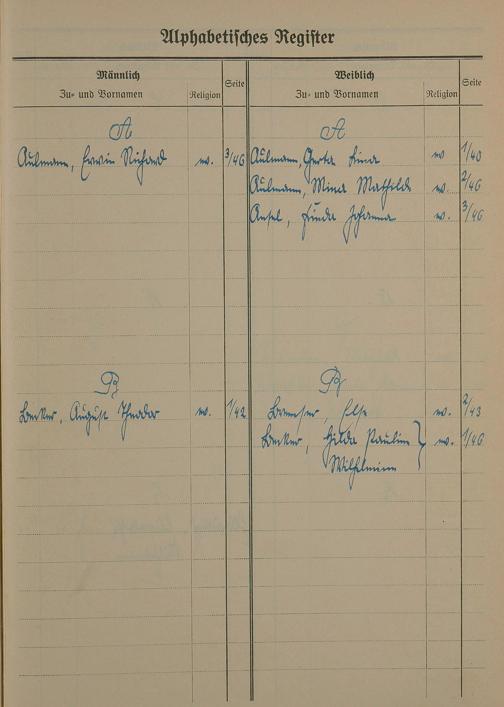 Alphabetisches Register
Männlich
Zu- und Vornamen
Religion
Seite
Weiblich
Zu- und Vornamen
Religion
Seite
A
Aulmann, Erwin Richard w. 3/46
A
Aulmann, Herta Lina w 1/40
Aulmann, Mina Mathilde w. 2/46
Ansel, Frieda Johanna w. 3/46
B
Becker, August Theodor w. 1/42
B
Bremser, Else w. 2/43
Becker, Hilda Pauline w. 1/46
Wilhelmine